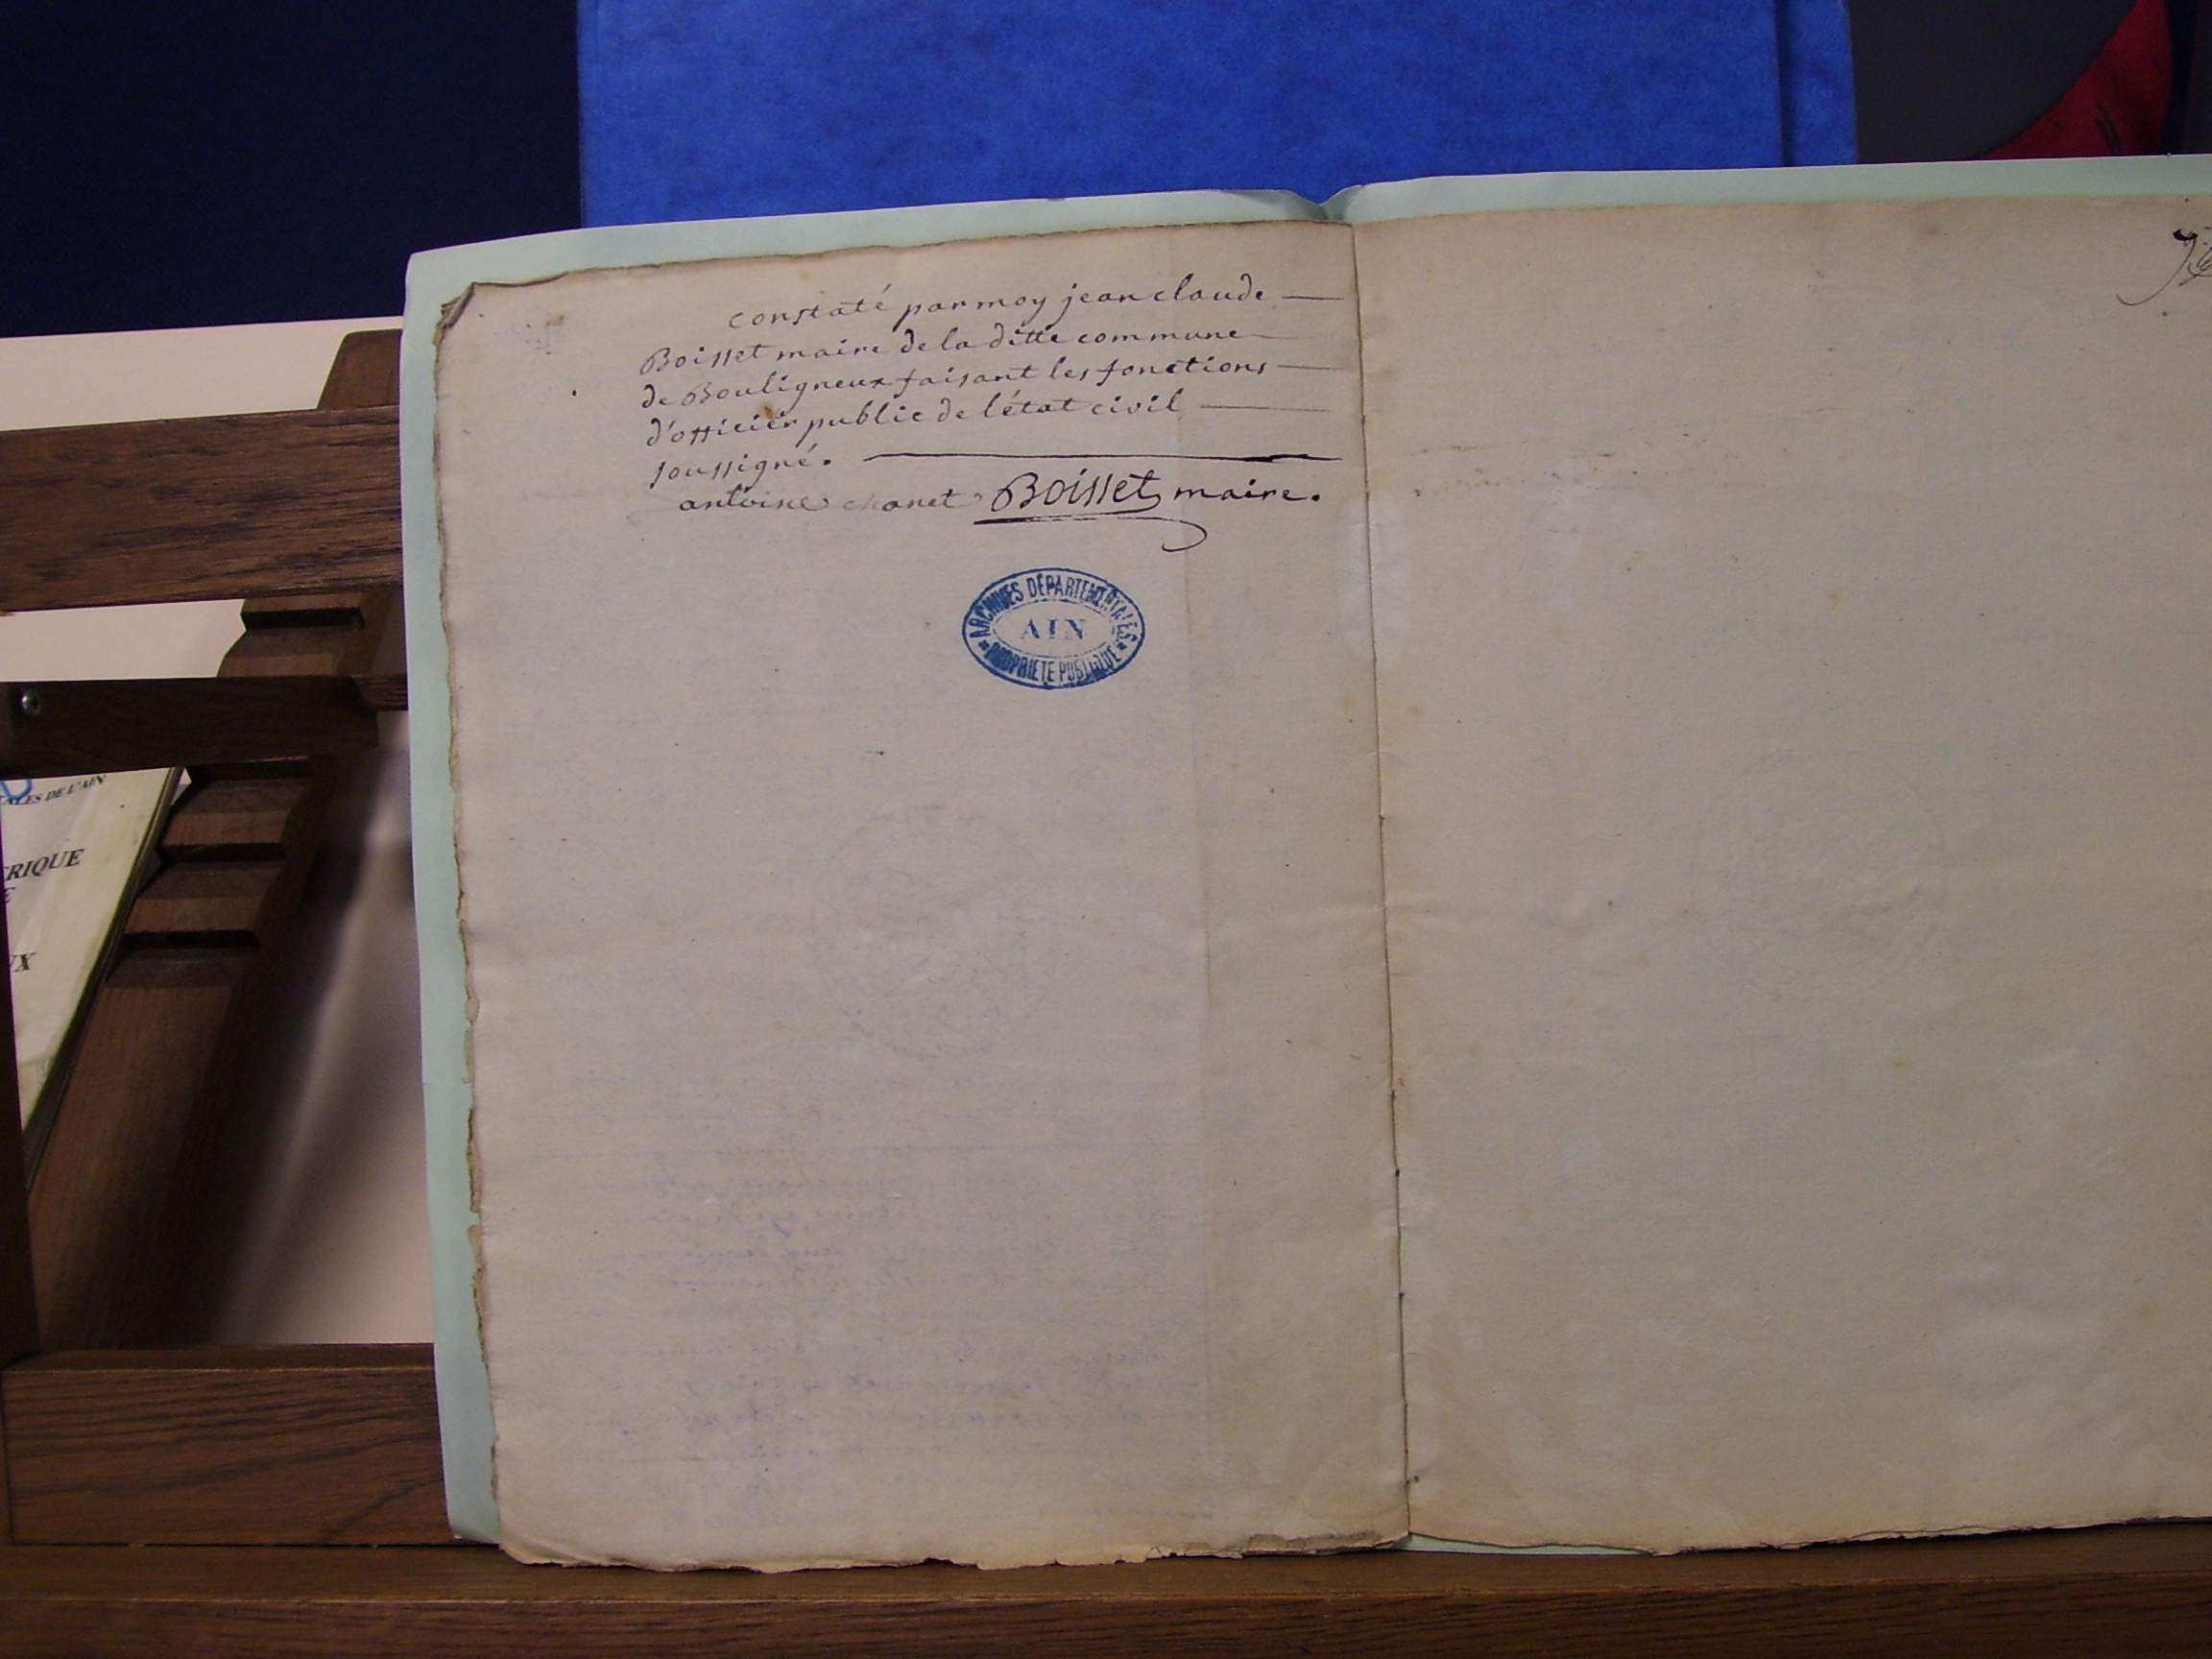 constaté par moy jean claude
Boisset maire de la ditte commune
de Bouligneux faisant les fonctions
d'officier public de l'état civil
soussigné.
antoine chanet Boisset maire.
ARCHIVES DÉPARTEMENTALES
AIN
PROPRIETE PUBLIQUE
ALES DE L'AIN
ERIQUE
E
UX